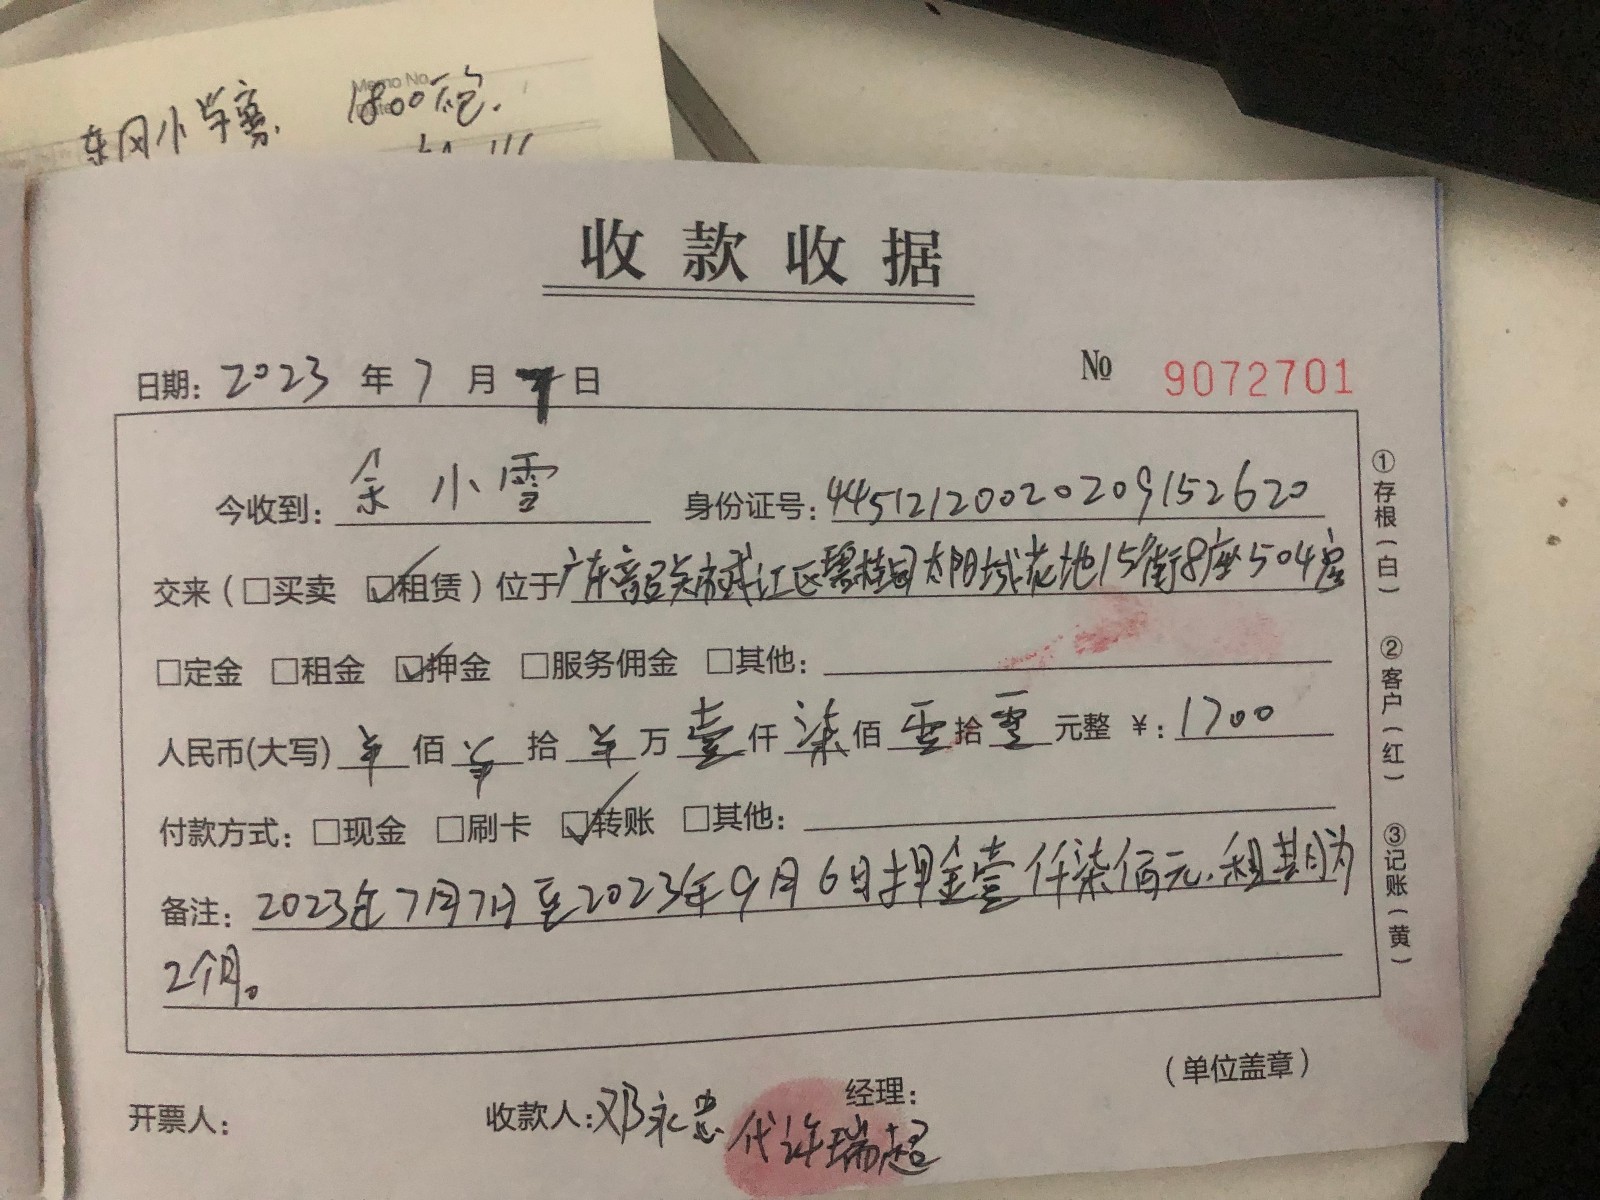 东风小学寡 1800砣.
Memo No.
Date
收款收据
日期: 2023 年 7 月 7 日 № 9072701
今收到: 余小雪 身份证号: 44512120020209152620
交来(□买卖 ☑租赁)位于广东韶关市武江区碧桂园太阳城花地15街8座504房
□定金 □租金 ☑押金 □服务佣金 □其他:
人民币(大写) 佰 拾 万 壹 仟 柒 佰 零 拾 零 元整 ¥: 1700
付款方式: □现金 □刷卡 ☑转账 □其他:
备注: 2023年7月7日至2023年9月6日押金壹仟柒佰元.租期为
2个月。
(单位盖章)
开票人: 收款人: 邓永忠 代许瑞超 经理:
①存根(白) ②客户(红) ③记账(黄)